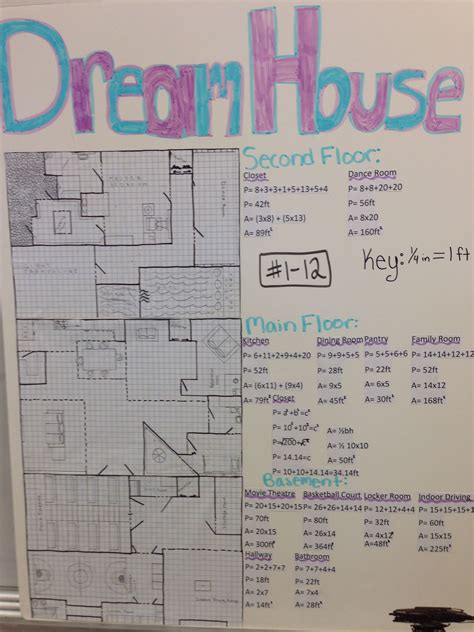 Dream House
Second Floor:
Closet
P= 8+3+3+1+5+13+5+4
P= 42ft
A= (3x8) + (5x13)
A= 89ft²
Dance Room
P= 8+8+20+20
P= 56ft
A= 8x20
A= 160ft²
#1-12
Key: 1/4 in = 1ft
Main Floor:
Kitchen
P= 6+11+2+9+4+20
P= 52ft
A= (6x11) + (9x4)
A= 79ft²
Dining Room
P= 9+9+5+5
P= 28ft
A= 9x5
A= 45ft²
Pantry
P= 5+5+6+6
P= 22ft
A= 6x5
A= 30ft²
Family Room
P= 14+14+12+12
P= 52ft
A= 14x12
A= 168ft²
Closet
P= a²+b²=c²
P= 10²+10²=c²
P=√200=√c²
P= 14.14=c
P= 10+10+14.14=34.14ft
A= ½bh
A= ½ 10x10
A= 50ft²
Basement:
Movie Theatre
P= 20+15+20+15
P= 70ft
A= 20x15
A= 300ft²
Basketball Court
P= 26+26+14+14
P= 80ft
A= 26x14
A= 364ft²
Locker Room
P= 12+12+4+4
P= 32ft
A= 4x12
A=48ft²
Indoor Driving
P= 15+15+15+1
P= 60ft
A= 15x15
A= 225ft²
Hallway
P= 2+2+7+7
P= 18ft
A= 2x7
A= 14ft²
Bathroom
P= 7+7+4+4
P= 22ft
A= 7x4
A= 28ft²